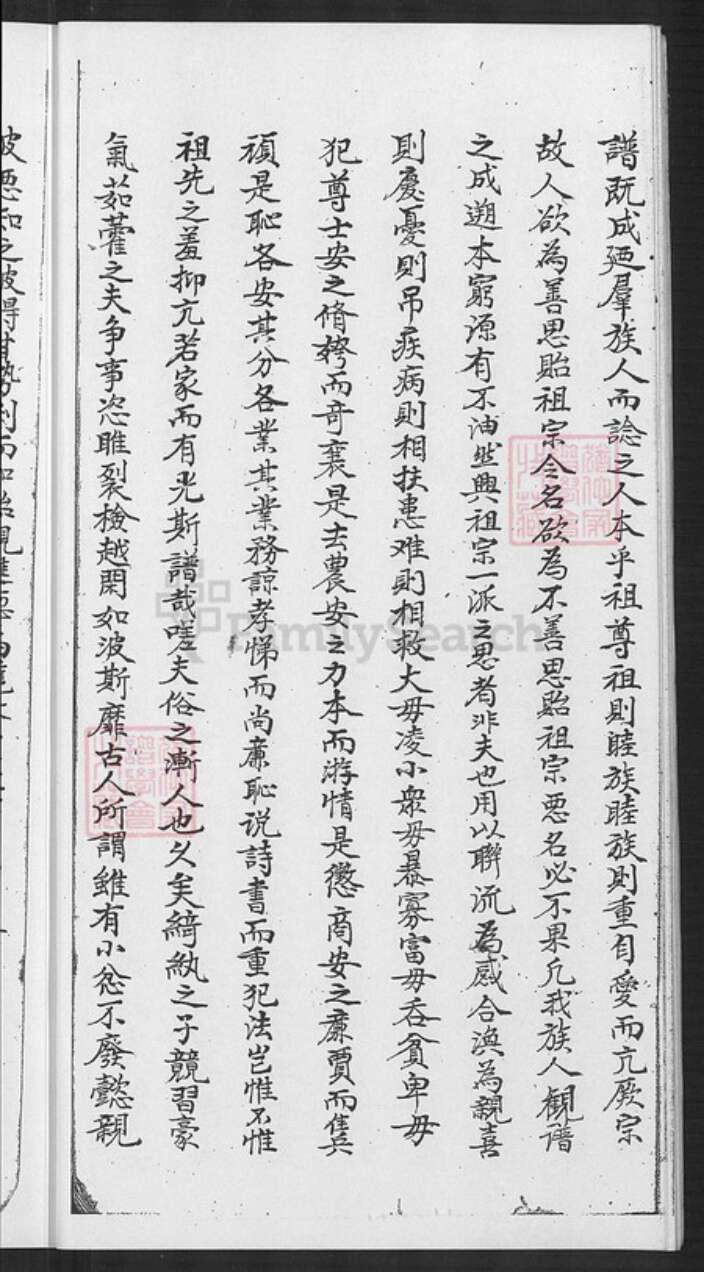 譜既成廼羣族人而諗之人本乎祖尊祖則睦族睦族則重自愛而亢厥宗
故人欲為善思貽祖宗令名欲為不善思貽祖宗惡名必不果凡我族人觀譜
之成遡本窮源有不油然興祖宗一派之思者非夫也用以聯流為感合渙為親喜
則慶憂則吊疾病則相扶患难則相救大毋凌小衆毋暴寡富毋吞貧卑毋
犯尊士安之脩姱而竒袤是去農安之力本而游惰是懲商安之廉賈而隻
頑是恥各安其分各業其業務諒孝悌而尚廉恥説詩書而重犯法岂惟不惟
祖先之羞抑亢若家而有光斯譜哉嗟夫俗之漸人也久矣綺紈之子競習豪
氣茹藿之夫争事恣睢裂檢越閑如波斯靡古人所謂雖有小忿不廢懿親
FamilySearch